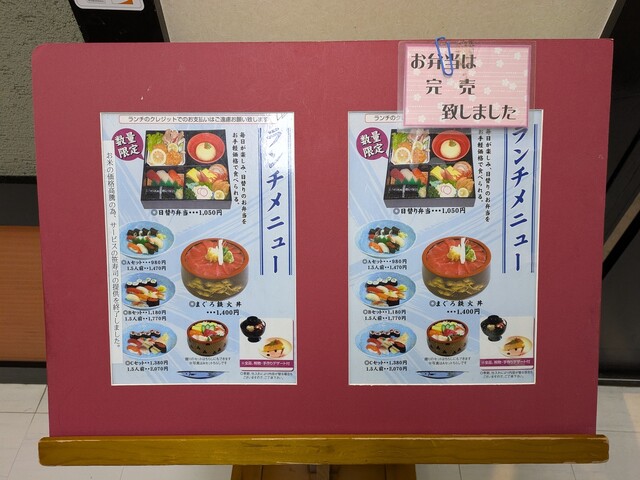 お弁当は
完売
致しました
ランチのクレジットでのお支払いはご遠慮お願い致します
数量
限定
ランチメニュー
毎日が楽しみ、日替りのお弁当を
お手軽価格で食べられる。
お米の価格高騰の為、サービスの茶寿司の提供を終了しました。
◎日替り弁当・・・1,050円
◎Aセット・・・980円
1.5人前・・1,470円
◎まぐろ鉄火丼
・・・1,400円
◎Bセット・・1,180円
1.5人前・・1,770円
◎Cセット・・1,380円
1.5人前・・2,070円
ランチのク
数量
限定
ランチメニュー
毎日が楽しみ、日替りのお弁当を
お手軽価格で食べられる。
◎日替り弁当・・・1,050円
◎Aセット・・・980円
1.5人前・・1,470円
◎まぐろ鉄火丼
・・・1,400円
◎Bセット・・1,180円
1.5人前・・1,770円
◎Cセット・・1,380円
1.5人前・・2,070円